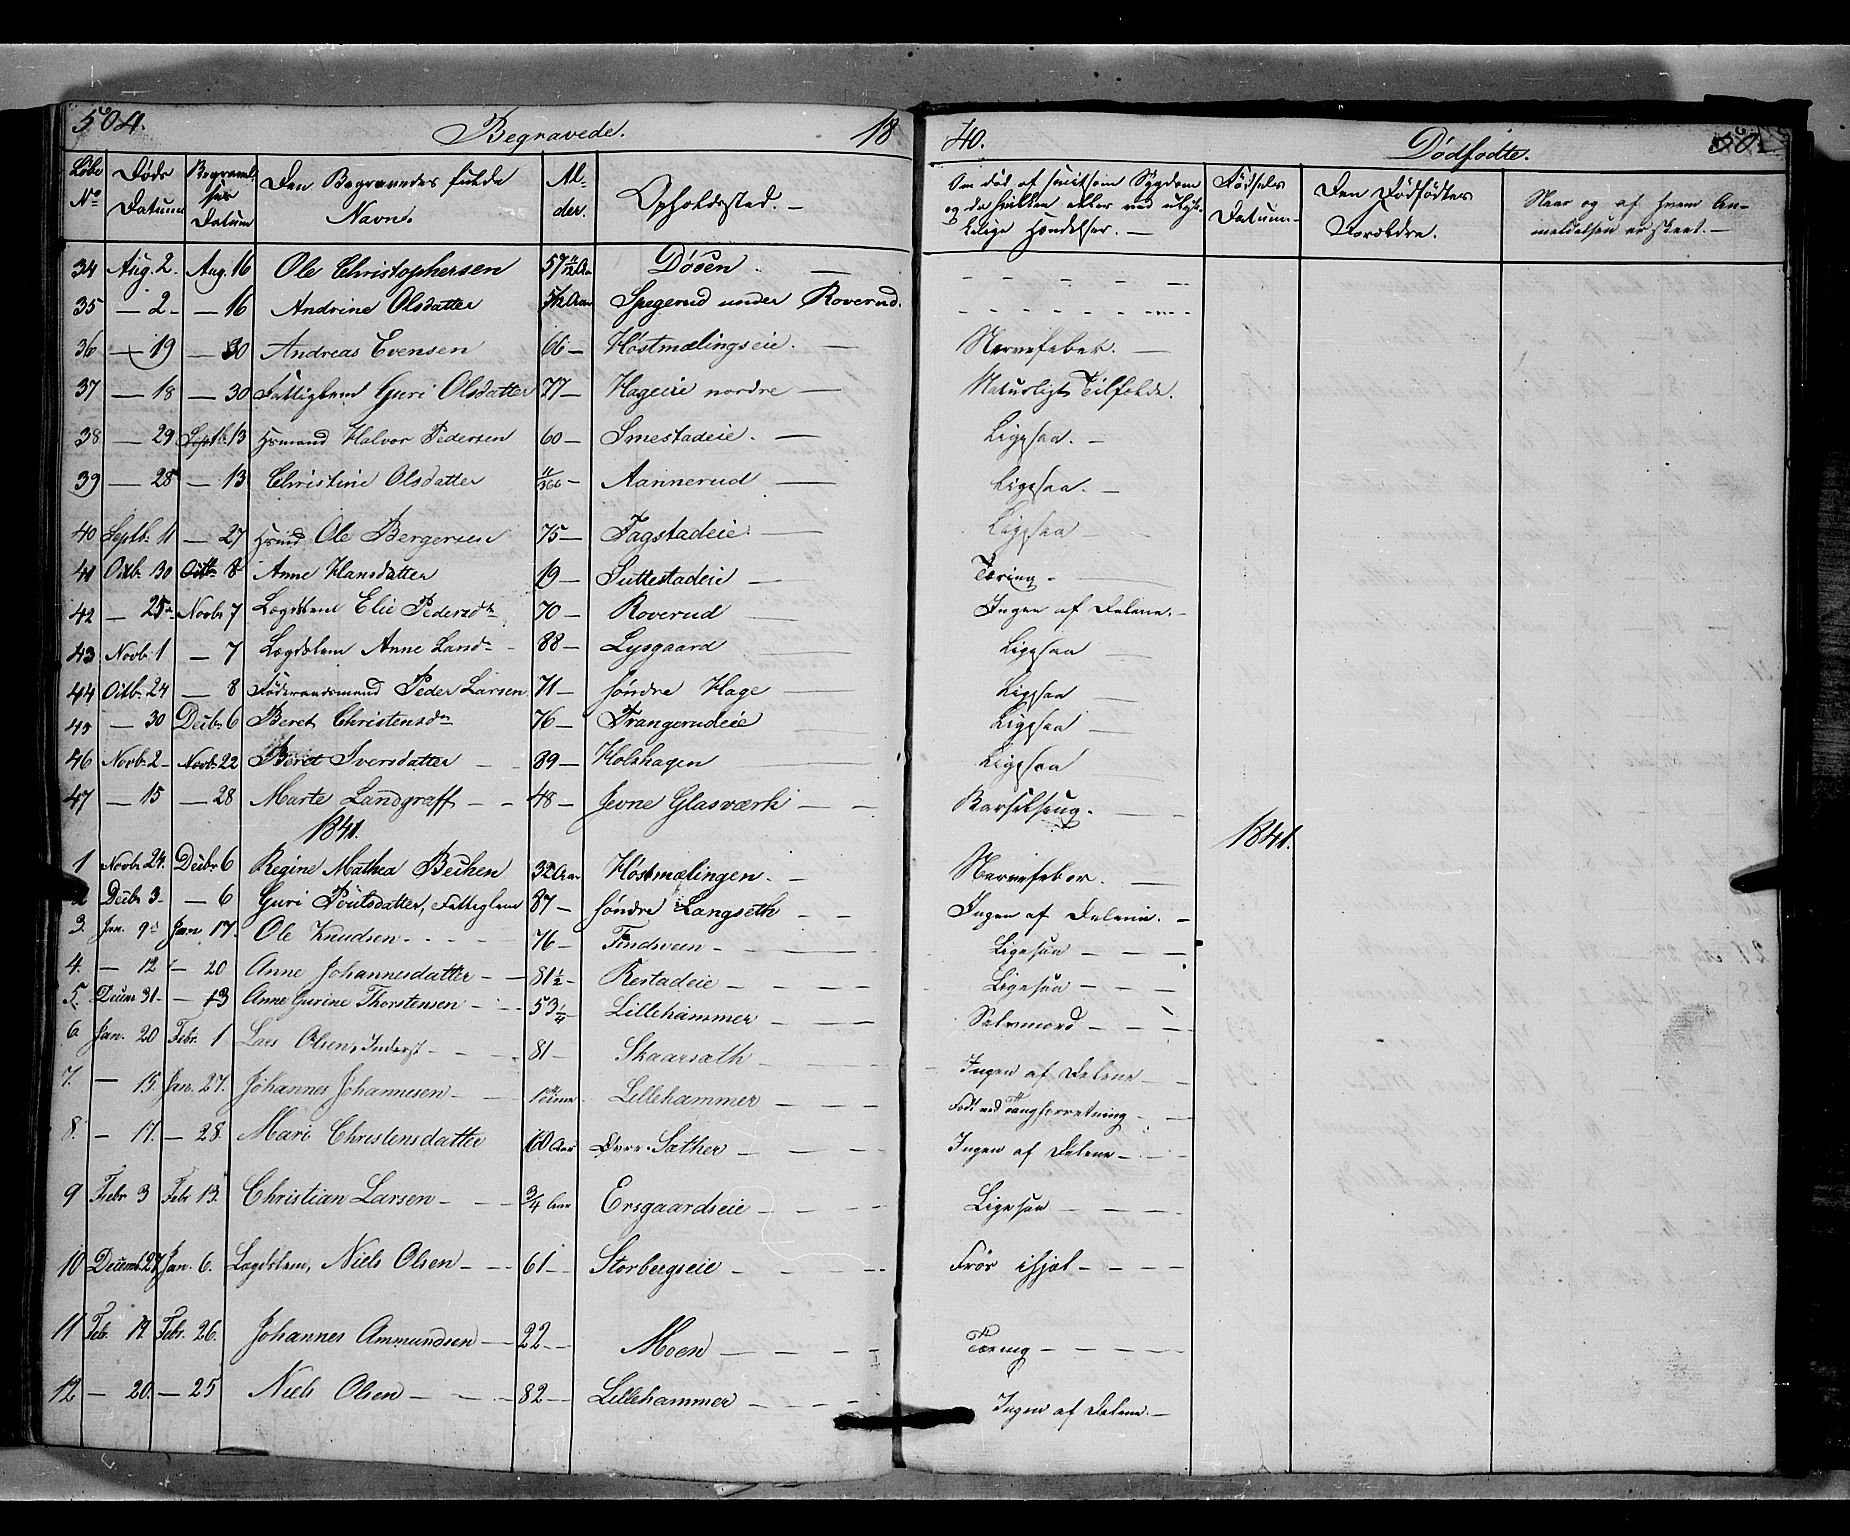 504. Begravede. 18 40. Dødfødte. 50
Løbe No Døds Datum Begravelses Datum Den Begravedes fulde Navn. Alder. Opholdssted. Om død af smitsom Sygdom og da hvilken eller ved ulykkelige Hændelser. Fødsels Datum Den Dødfødtes Forældre. Naar og af hvem Anmeldelsen er skeet.
34 Aug. 2. Aug. 16 Ole Christophersen Døsen.
35 — 2 — 16 Andrine Olsdatter Spegerud under Roverud.
36 — 19 — 30 Andreas Evensen 66 — Høstmælingseie. Nervefeber.
37 — 18 — 30 Fattiglem Guri Olsdatter 77 — Hageeie nordre Naturligt Tilfælde.
38 — 29 Septb. 13 Huusmand Halvor Pedersen 60 — Smestadeie. Ligesaa.
39 — 28 — 13 Christine Olsdatter 11/366 — Aannerud Ligesaa.
40 Septb. 11 — 27 Hmd Ole Bergersen 75 — Fagstadeie. Ligesaa
41 Octb. 30 Octb. 8 Anne Hansdatter 19 — Suttestadeie Tæring.
42 — 25 Novb. 7 Lægdslem Elie Pedersdr 70 — Roverud Ingen af Delene.
43 Novb. 1 — 7 Lægdslem Anne Larsdr 88 — Lysgaard Ligesaa
44 Octb. 24 — 8 Føderaadsmand Peder Larsen 71 — søndre Hage Ligesaa
45 — 30 Decbr. 6 Beret Christensdr 76 — Trangerudeie Ligesaa
46 Novb. 2 Novb. 22 Beret Iversdatter 89 — Holshagen Ligesaa
47 — 15 — 28 Marte Landgraff 48 — Jevne Glasværk Barselseng.
1841. 1841.
1 Novb. 24. Decbr. 6 Regine Mathea 32 Aar Høstmælingen. Nervefeber.
2 Decbr 3 — 6 Guri Poulsdatter, Fattiglem 87 — søndre Langseth Ingen af Delene.
3. Jan. 9 Jan 17. Ole Knudsen 76 — Findsveen Ligesaa
4. — 12 — 20 Anne Johannesdatter 81½ Restadeie Ligesaa
5. Decem 31 — 13 Anne Gurine Thorstensen 53¼ Lillehammer Selvmord
6. Jan. 20 Febr. 1 Lars Olsen, Inderst 81 — Skaarsath Ingen af Delene
7. — 15. Jan. 27. Johannes Johannesen Lillehammer Født ved Tangforretning
8. — 17. — 28. Mari Christensdatter 60 Aar Øvre Sæther Ingen af Delene
9 Febr 3 Febr 13. Christian Larsen 3/4 Aar Ersgaardseie Ligesaa
10 Decemb. 27 Jan. 6. Lægdslem, Niels Olsen 61 — Storbergseie Frøs ihjel
11 Feb. 19 Febr. 26. Johannes Ammundsen 22 — Moen Tæring
12 — 20. — 25 Niels Olsen 82 — Lillehammer Ingen af Delene.